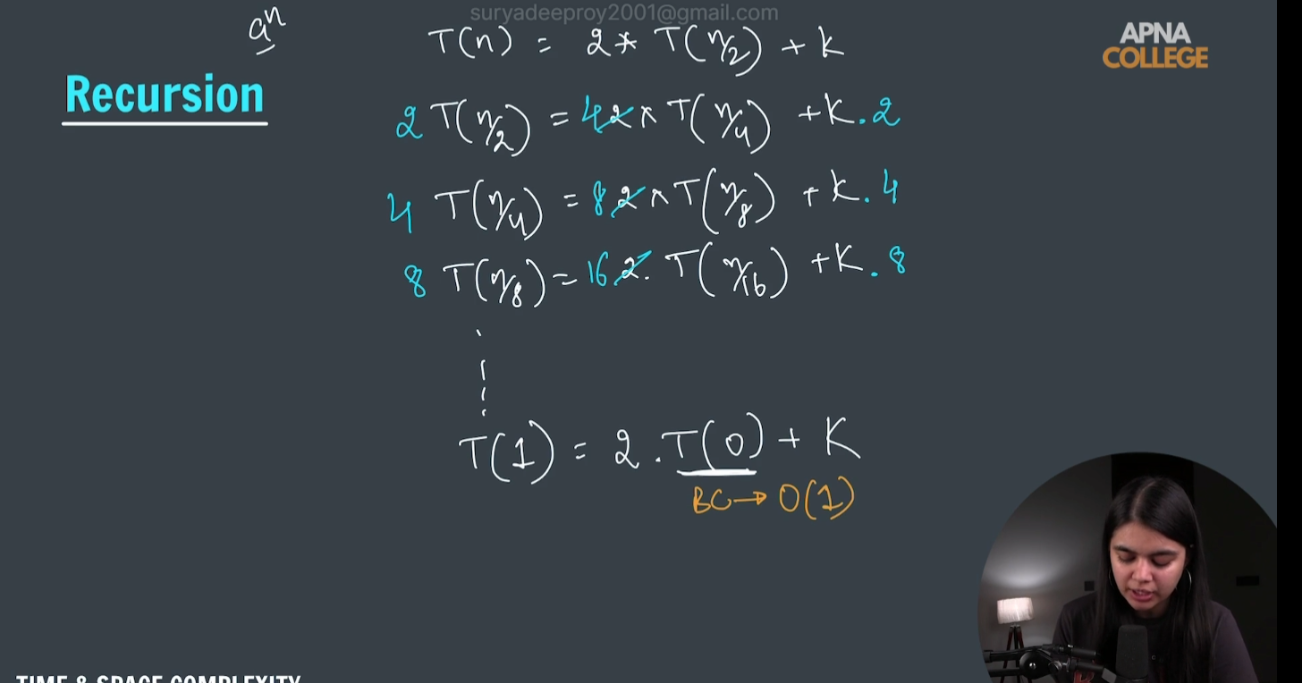 suryadeeproy2001@gmail.com
aⁿ
T(n) = 2* T(n/2) + K
APNA
COLLEGE
Recursion
2 T(n/2) = 4 2 * T(n/4) + K.2
4 T(n/4) = 8 2 * T(n/8) + K.4
8 T(n/8) = 16 2. T(n/16) + K.8
T(1) = 2.T(0) + K
BC→ O(1)
TIME & SPACE COMPLEXITY